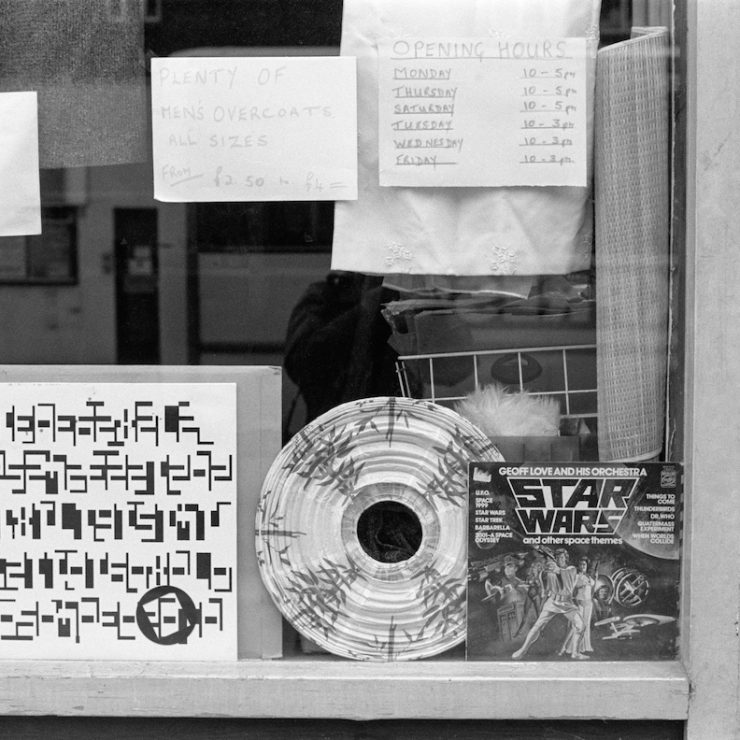 PLENTY OF
MEN'S OVERCOATS
ALL SIZES
FROM £2.50 to £4=
OPENING HOURS
MONDAY 10-5pm
THURSDAY 10-5pm
SATURDAY 10-5pm
TUESDAY 10-3pm
WEDNESDAY 10-3pm
FRIDAY 10-3pm
GEOFF LOVE AND HIS ORCHESTRA
STAR
WARS
and other space themes
U.F.O.
SPACE
1999
STAR WARS
STAR TREK
BARBARELLA
2001-A SPACE
ODYSSEY
THINGS TO
COME
THUNDERBIRDS
DR. WHO
QUATERMASS
EXPERIMENT
WHEN WORLDS
COLLIDE